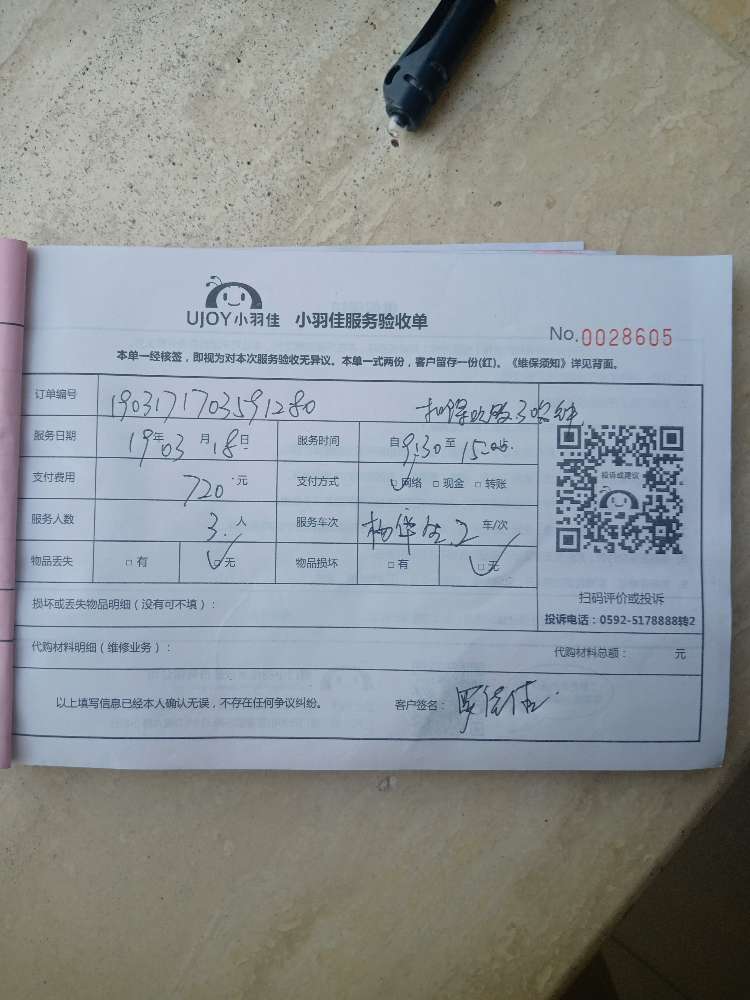 UJOY小羽佳 小羽佳服务验收单
No.0028605
本单一经核签，即视为对本次服务验收无异议。本单一式两份，客户留存一份(红)。《维保须知》详见背面。
订单编号 1903171703591280
服务日期 19年03月18日 服务时间 自9:30至15:00
支付费用 720元 支付方式 □网络 □现金 □转账
服务人数 3人 服务车次 2车/次
物品丢失 □有 □无 物品损坏 □有 □无
投诉或建议
扫码评价或投诉
投诉电话：0592-5178888转2
损坏或丢失物品明细（没有可不填）：
代购材料明细（维修业务）： 代购材料总额： 元
以上填写信息已经本人确认无误，不存在任何争议纠纷。 客户签名：